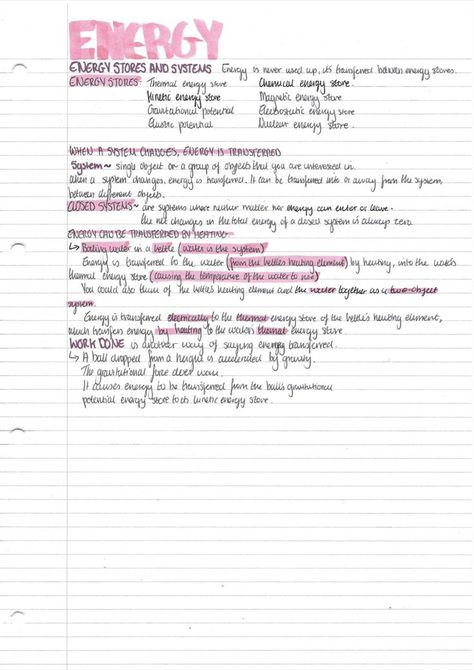 ENERGY
ENERGY STORES AND SYSTEMS Energy is never used up, it's transferred between energy stores.
ENERGY STORES: Thermal energy store Chemical energy store.
Kinetic energy store Magnetic energy store
Gravitational potential Electrostatic energy store
Elastic potential Nuclear energy store.
WHEN A SYSTEM CHANGES, ENERGY IS TRANSFERRED
System ~ single object or a group of objects that you are interested in.
When a system changes, energy is transferred. It can be transferred into or away from the system,
between different objects.
CLOSED SYSTEMS ~ are systems where neither matter nor energy can enter or leave.
the net changes in the total energy of a closed system is always zero.
ENERGY CAN BE TRANSFERRED BY HEATING
↳ Boiling water in a kettle (water is the system)
Energy is transferred to the water (from the kettle's heating element) by heating, into the water's
thermal energy store (causing the temperature of the water to rise)
You could also think of the kettle's heating element and the water together as a two-object
system.
Energy is transferred electrically to the thermal energy store of the kettle's heating element,
which transfers energy by heating to the water's thermal energy store.
WORK DONE is another way of saying energy transferred.
↳ A ball dropped from a height is accelerated by gravity.
The gravitational force does work.
It causes energy to be transferred from the ball's gravitational
potential energy store to its kinetic energy store.